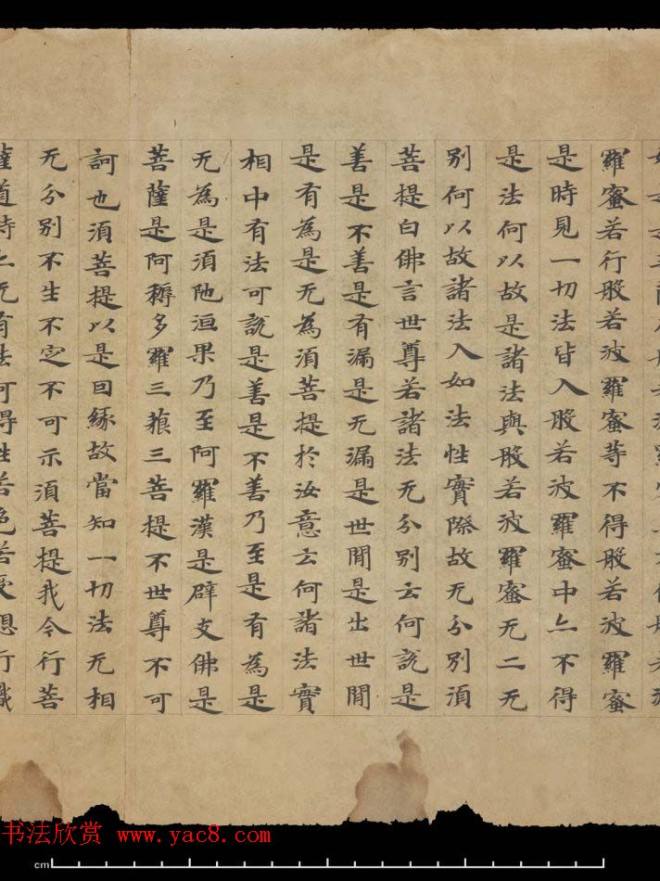 羅蜜若行般若波羅蜜等不得般若波羅蜜
是時見一切法皆入般若波羅蜜中亦不得
是法何以故是諸法與般若波羅蜜无二无
別何以故諸法入如法性實際故无分別須
菩提白佛言世尊若諸法无分別云何說是
善是不善是有漏是无漏是世間是出世間
是有為是无為須菩提於汝意云何諸法實
相中有法可說是善是不善乃至是有為是
无為是須陁洹果乃至阿羅漢是辟支佛是
菩薩是阿耨多羅三藐三菩提不世尊不可
訶也須菩提以是回緣故當知一切法无相
无分別不生不定不可示須菩提我令行菩
薩道時亦无有法可得性若色若受想行識
书法欣赏 www.yac8.com
cm